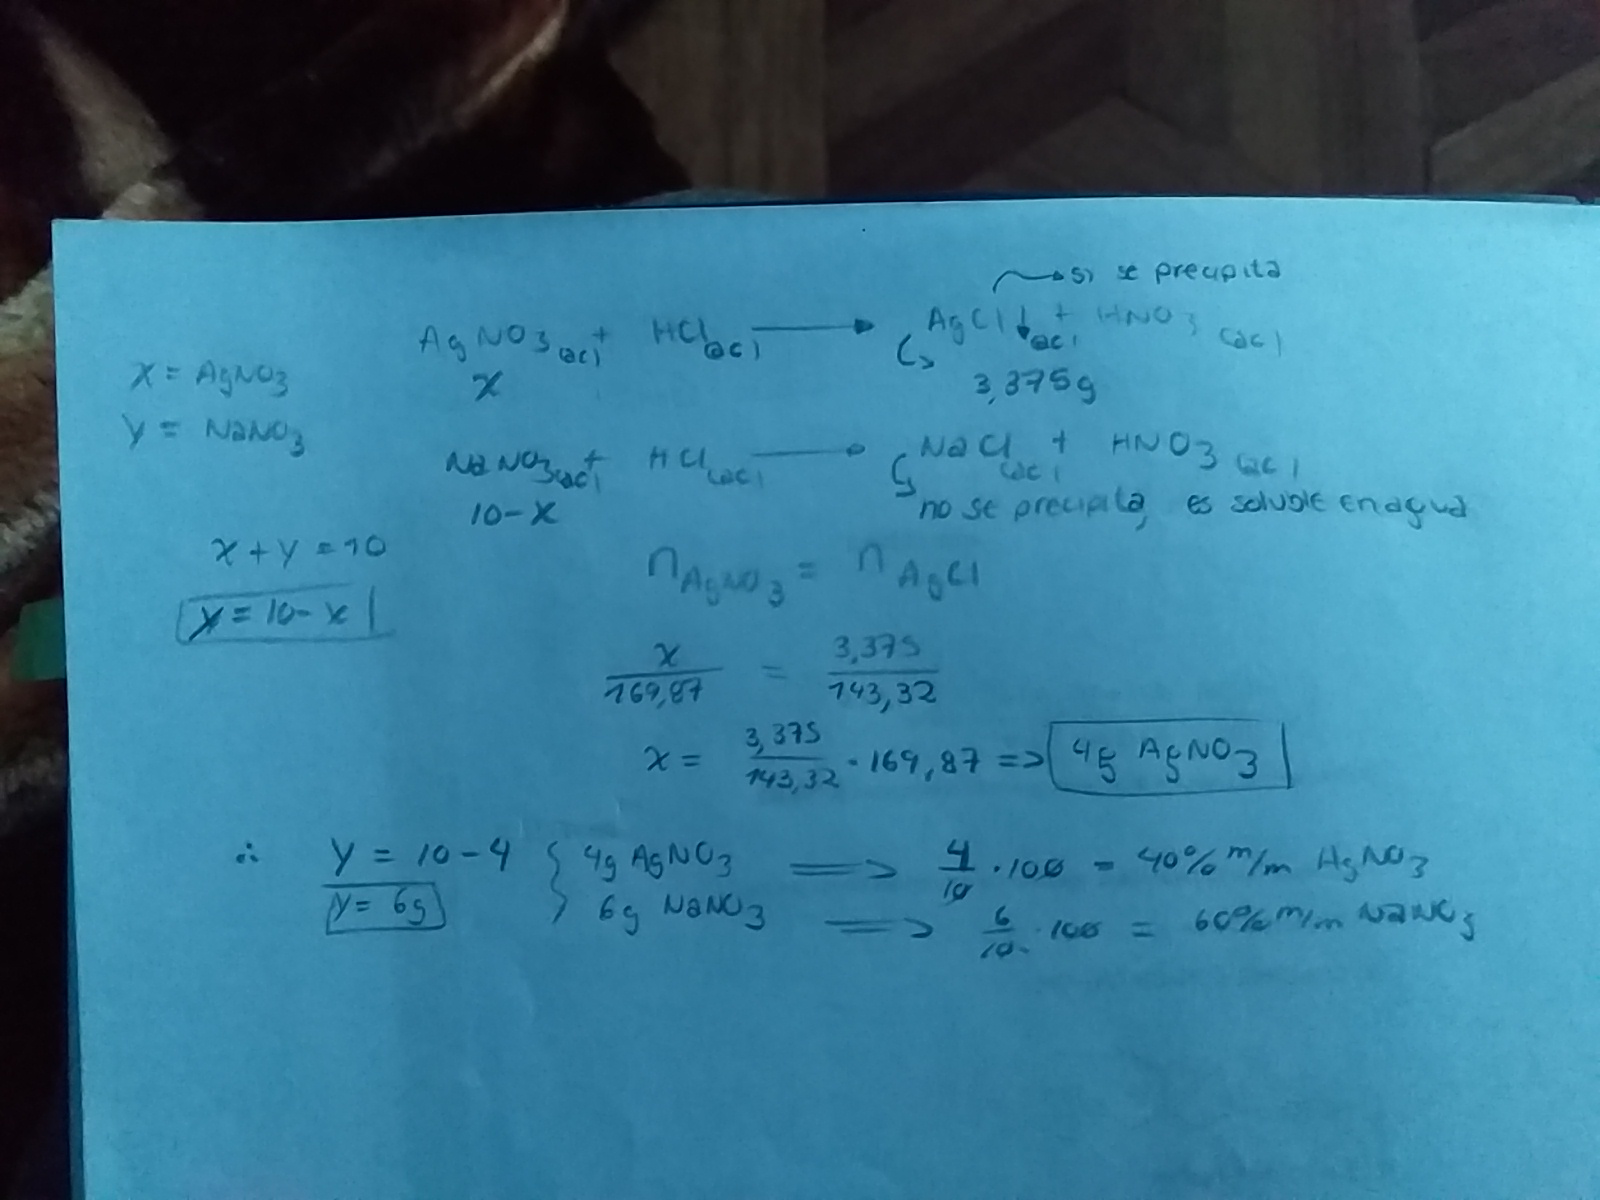 si se precipita
AgNO3(ac) + HCl(ac) → AgCl↓(ac) + HNO3(ac)
X = AgNO3
x
3,375g
Y = NaNO3
NaNO3(ac) + HCl(ac) → NaCl(ac) + HNO3(ac)
10-X
no se precipita, es soluble en agua
X + Y = 10
nAgNO3 = nAgCl
Y = 10 - X
x/169,87 = 3,375/143,32
x = 3,375/143,32 · 169,87 => 4g AgNO3
∴ Y = 10 - 4 { 4g AgNO3 => 4/10 · 100 = 40% m/m AgNO3
Y = 6g 6g NaNO3 => 6/10 · 100 = 60% m/m NaNO3